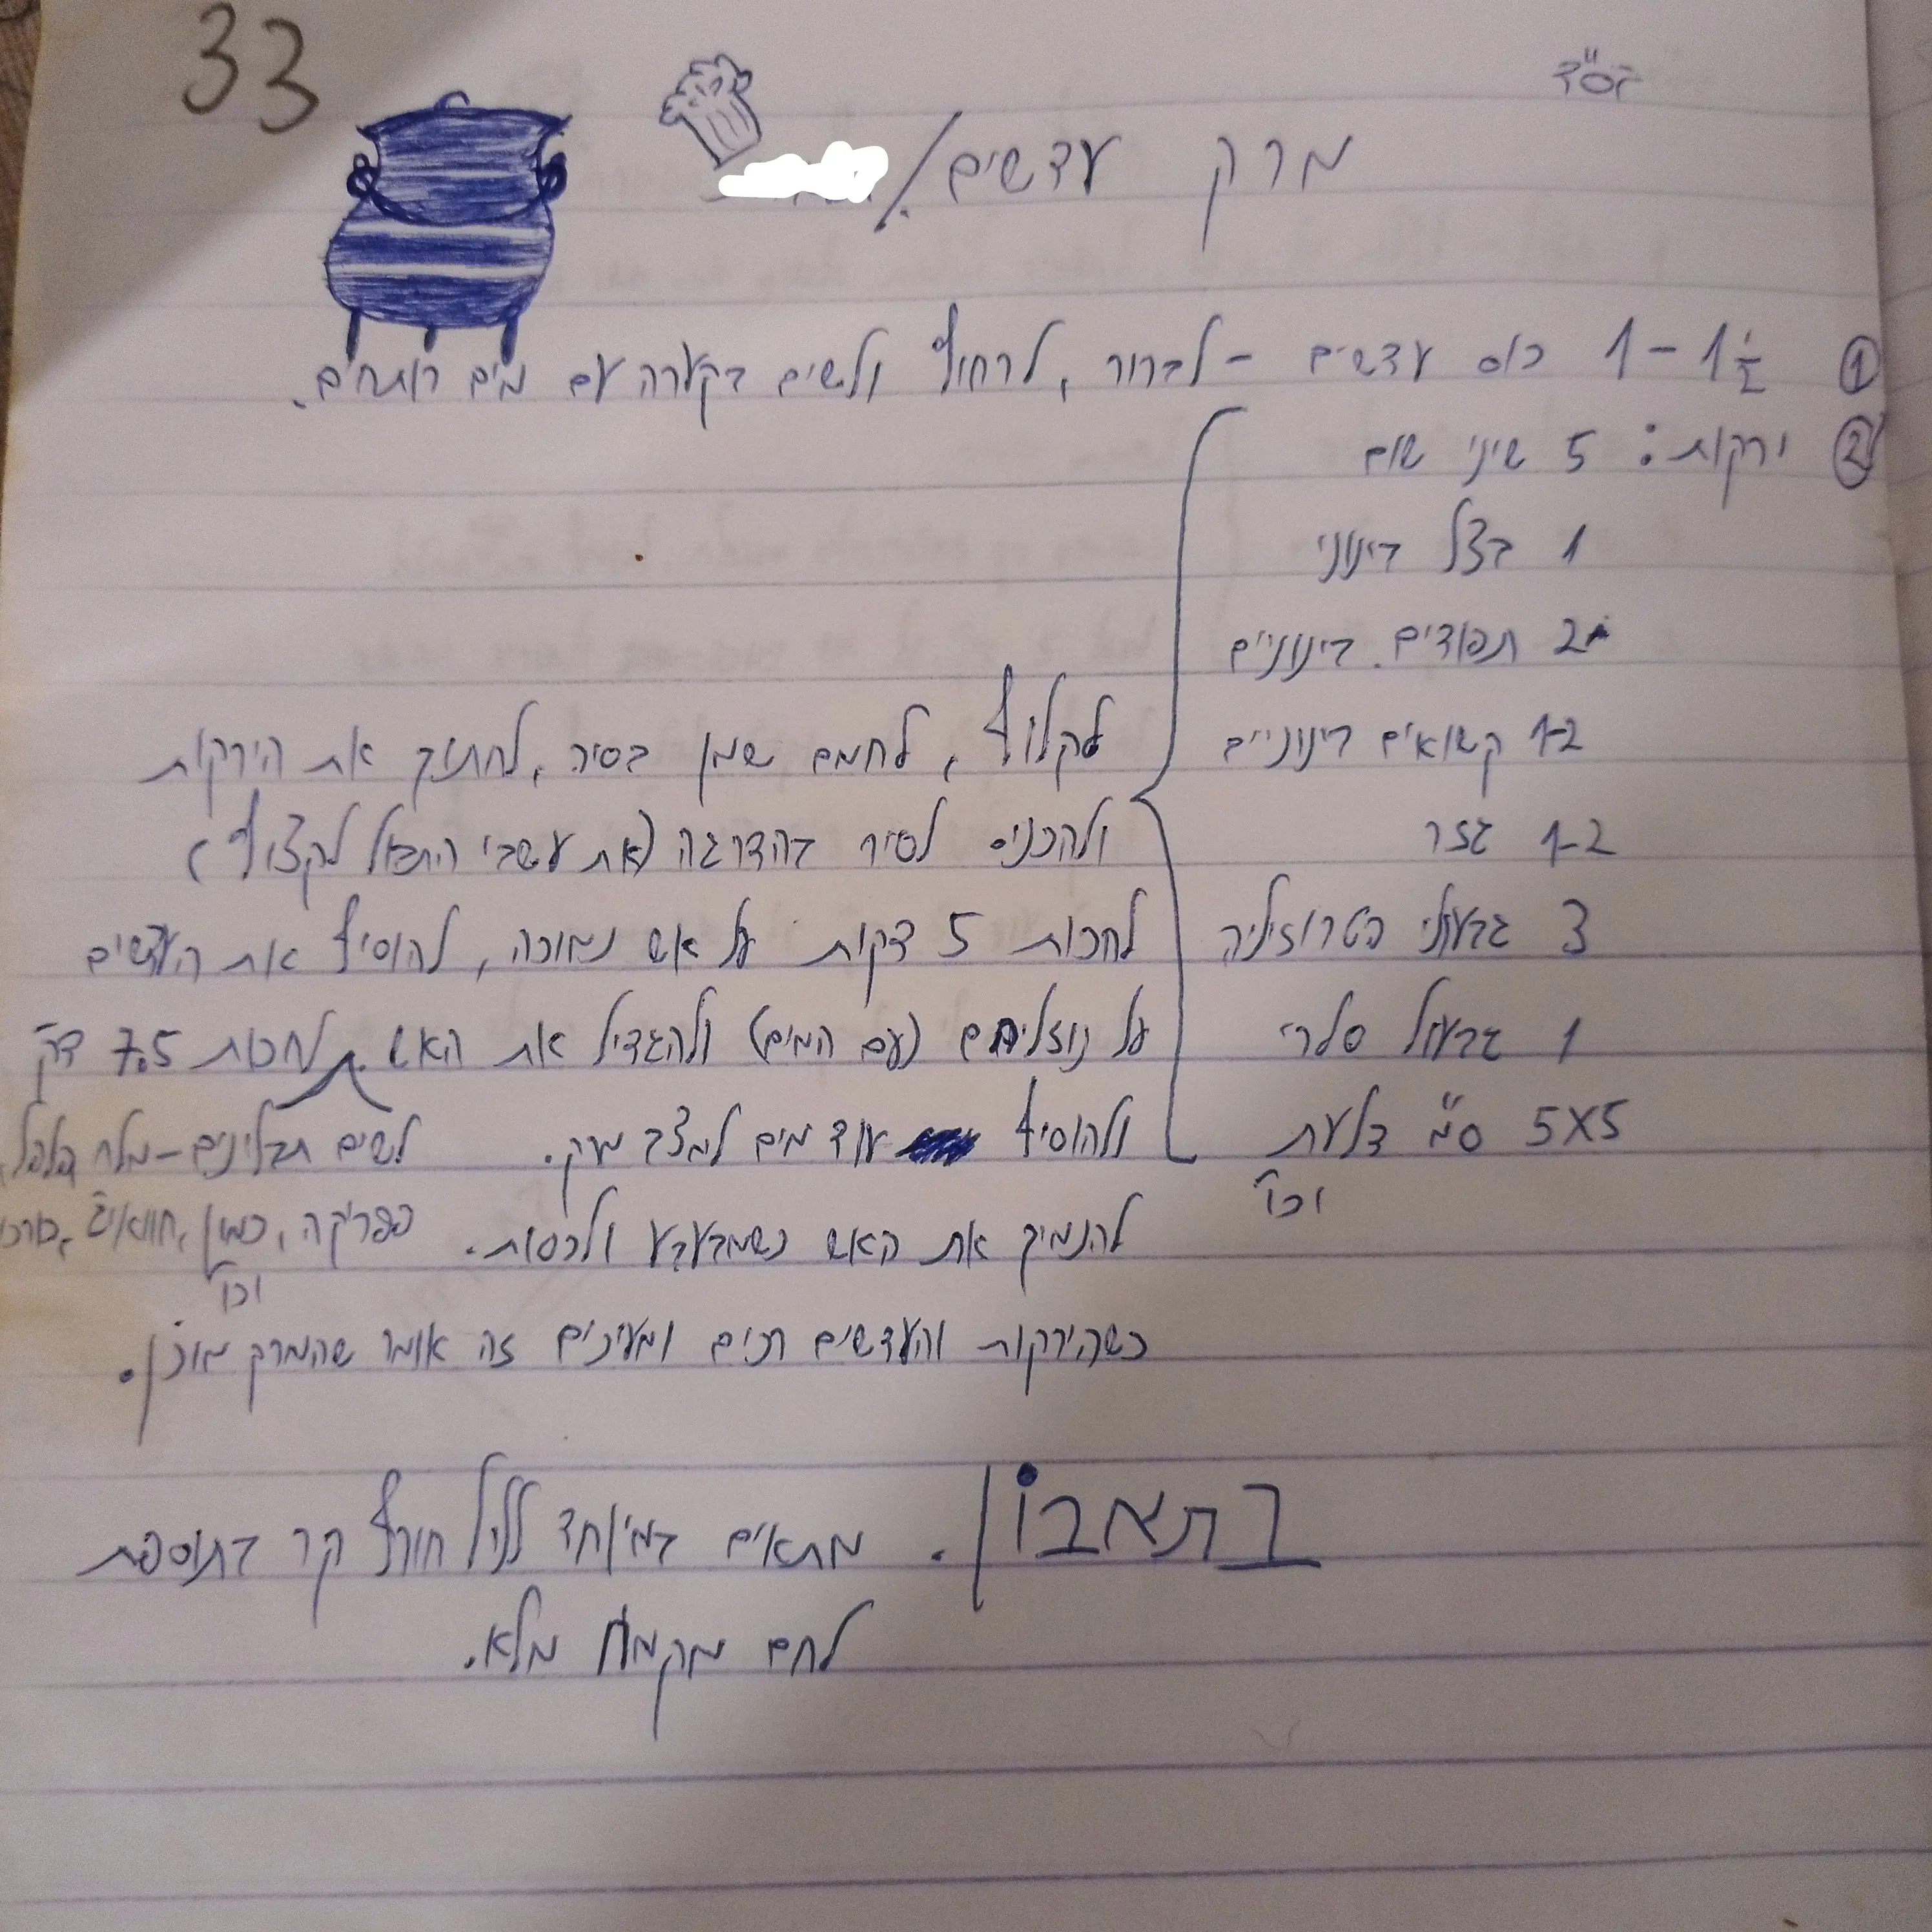 33
בס"ד
מרק עדשים /
① 1 - 1½ כוס עדשים - לברור, לרחוץ ולשים בקערה עם מים רותחים.
② ירקות: 5 שיני שום
1 בצל בינוני
2 תפודים. בינוניים
1-2 קשואים בינוניים
1-2 גזר
3 גבעולי פטרוזיליה
1 גבעול סלרי
5X5 ס"מ דלעת
וכו'
לקלוף, לחמם שמן בסיר, לחתוך את הירקות
ולהכניס לסיר בהדרגה (את עשבי התבול לקצוץ)
לחכות 5 דקות על אש נמוכה, להוסיף את העדשים
על נוזליהם (עם המים) ולהגדיל את האש. לחכות 7.5 דק'
ולהוסיף עוד מים למצב מרק.
לשים תבלינים - מלח, פלפל,
פפריקה, כמון, חוואיג', כורכו
וכו'
להנמיך את האש כשמבעבע ולכסות.
כשהירקות והעדשים רכים ומעיכים זה אומר שהמרק מוכן.
בתאבון. מתאים במיוחד לליל חורף קר בתוספת
לחם מקמח מלא.